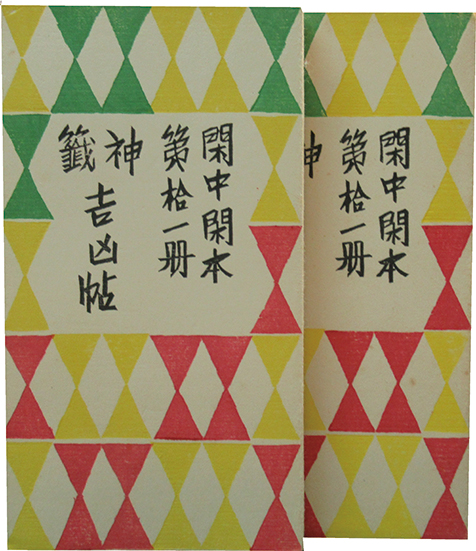 閑中閑本
第拾一册
神籤
吉凶帖
閑中閑本
第拾一册
神